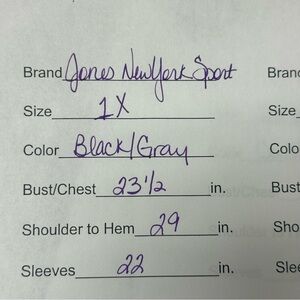 Brand Jones New York Sport Bran
Size 1X Size
Color Black/Gray Colo
Bust/Chest 23 1/2 in. Bust
Shoulder to Hem 29 in. Sho
Sleeves 22 in. Slee